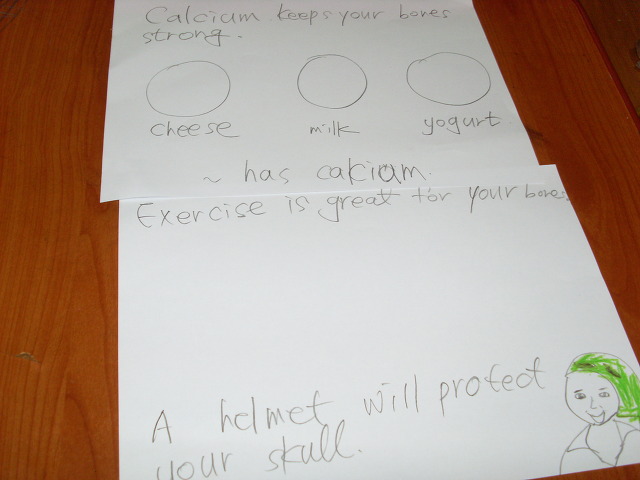 Calcium keeps your bones
strong.
cheese milk yogurt
~ has calcium.
Exercise is great for your bones
A helmet will protect
your skull.